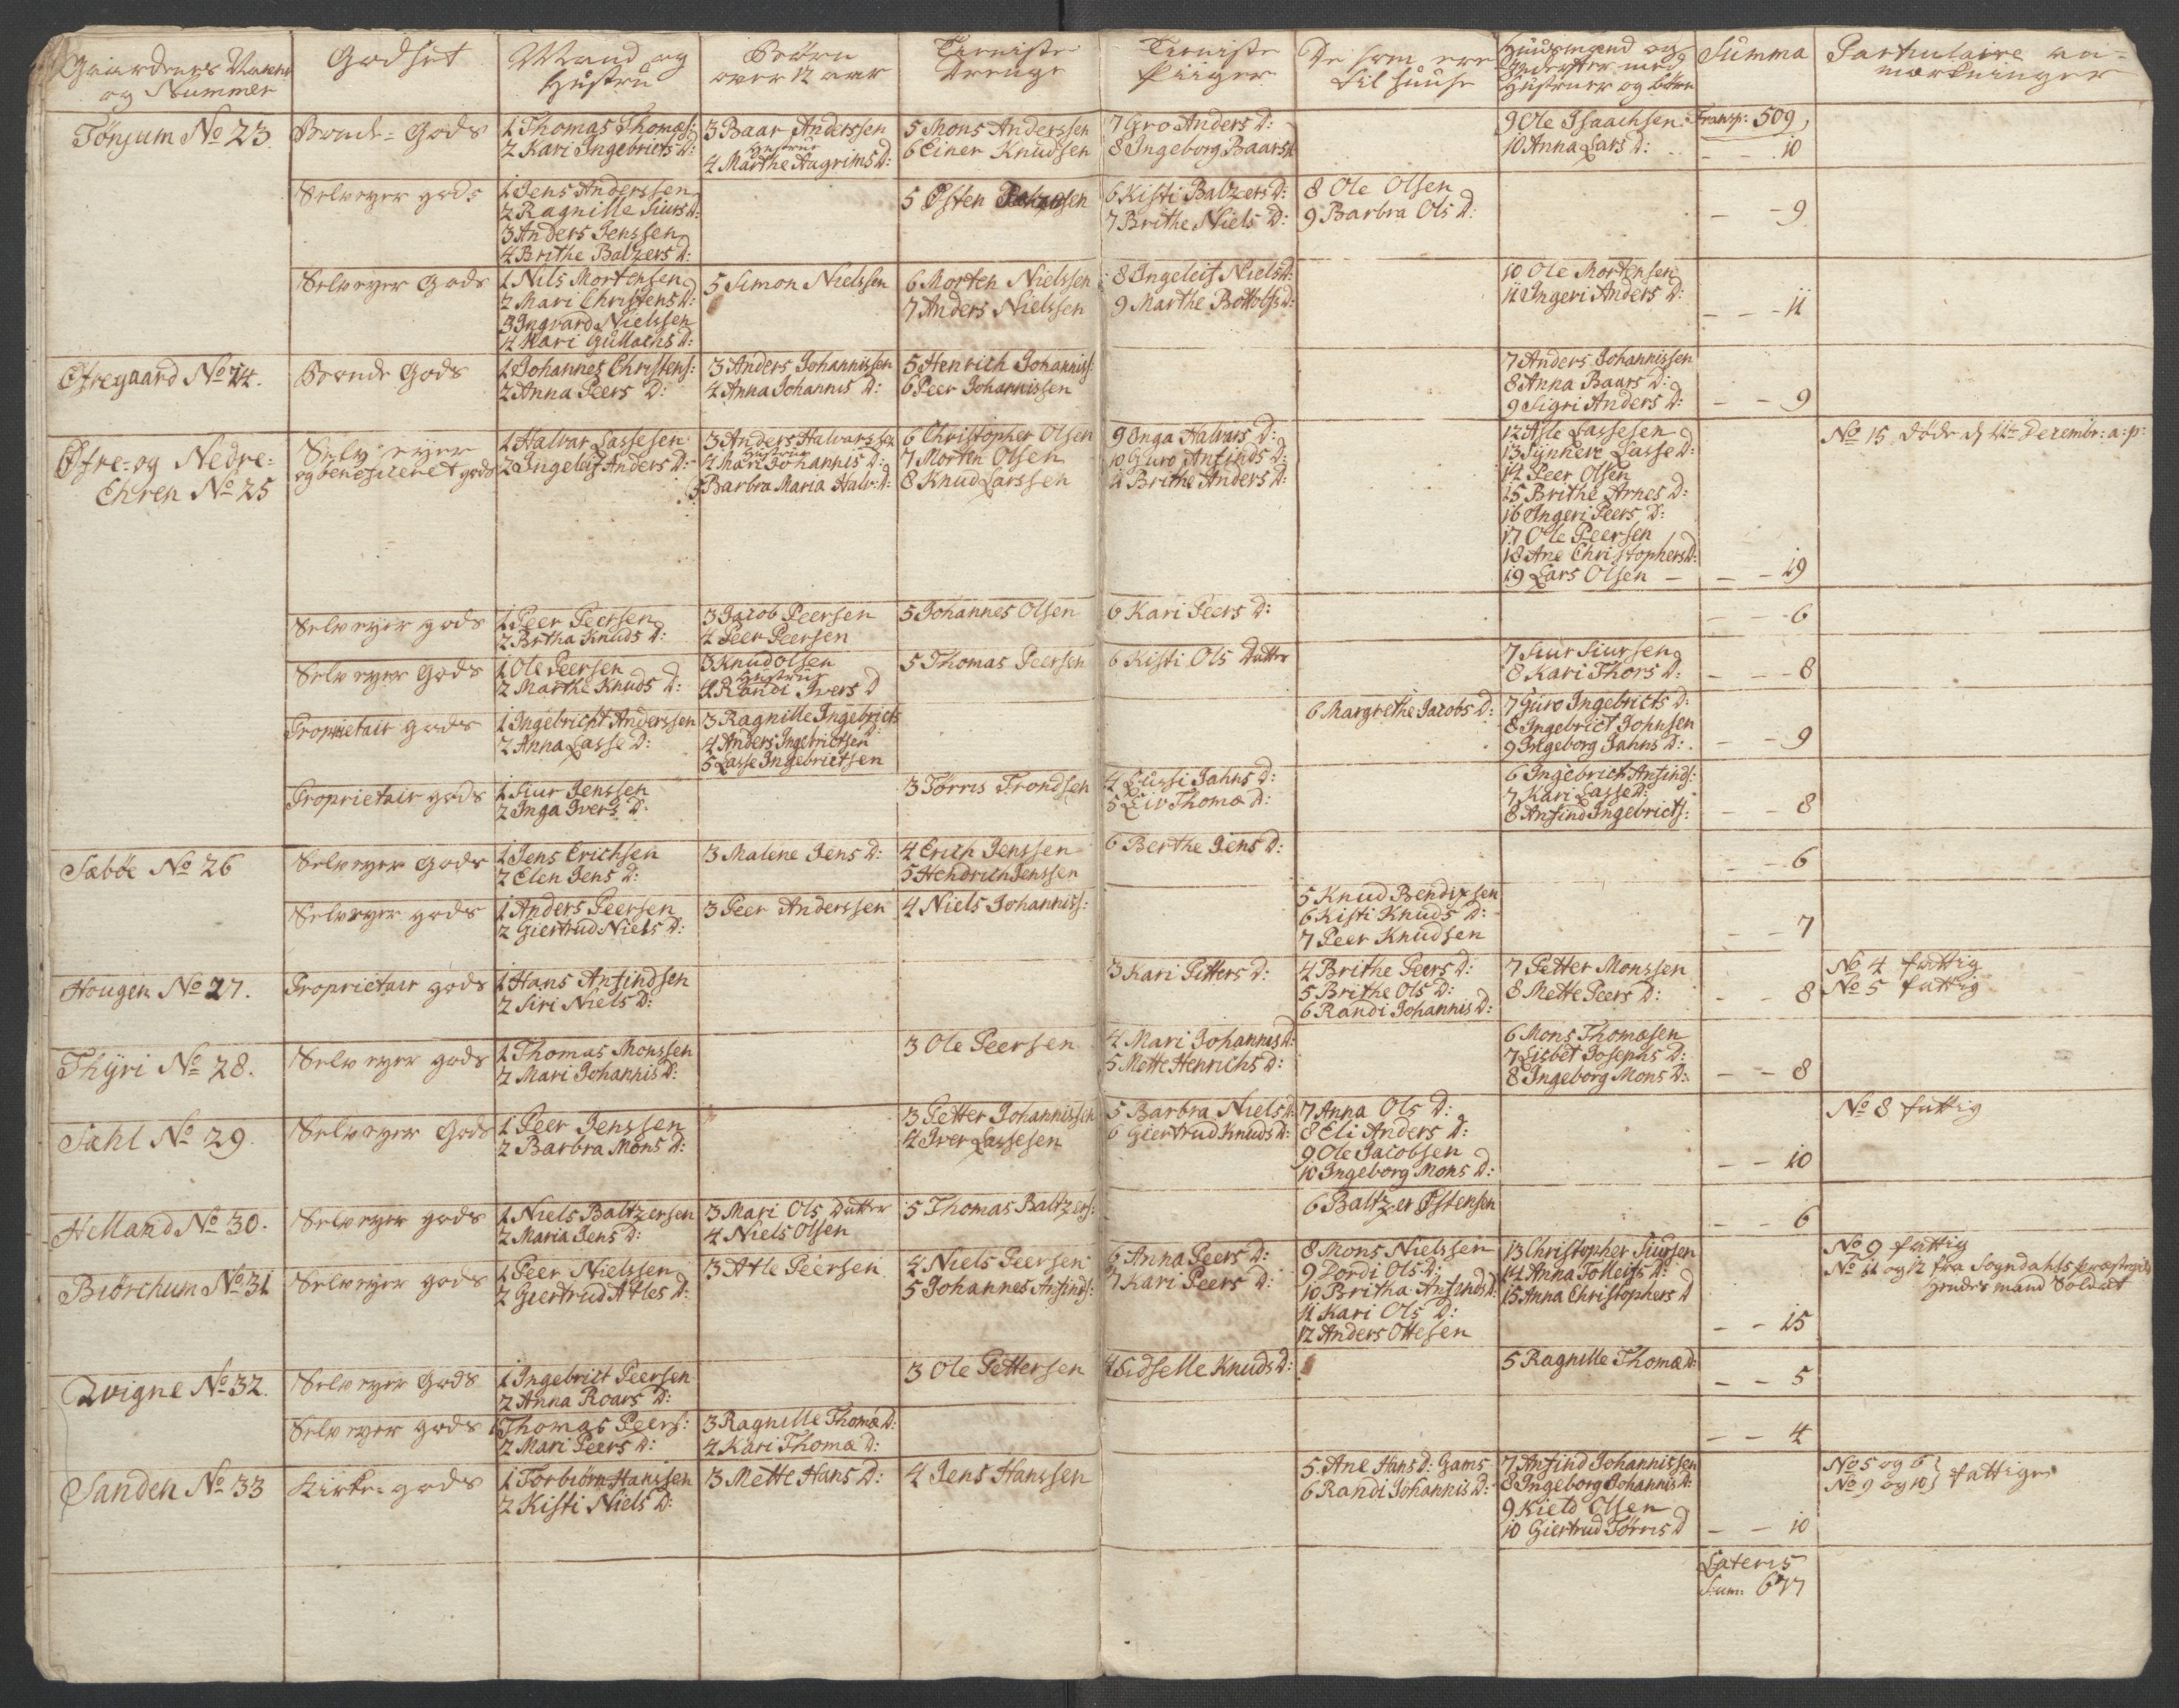 Gaardenes Nafne og Nummer | Godset | Mand og Hustru | Børn over 12 aar | Tieniste Drenge | Tieniste Piiger | De som ere til Huuse | Huusmænd og Inderster med Hustruer og Børn | Summa | Particulaire anmærkninger
Tönjum No 23. | Bonde-Gods | 1 Thomas Thomæs:
2 Kari Ingebricts D: | 3 Baar Anderssen
Hustrue
4 Marthe Augrims D: | 5 Mons Anderssen
6 Einer Knudsen | 7 Gro Anders D:
8 Ingeborg Baars D: | 9 Ole Isaachsen
10 Anna Lars D: | Transp: 509,
- - 10
Selveyer gods | 1 Jens Anderssen
2 Ragnille Siurs D:
3 Anders Jenssen
4 Brithe Balzers D: | 5 Østen | 6 Kisti Balzers D:
7 Brithe Niels D: | 8 Ole Olsen
9 Barbra Ols D: | - - 9
Selveyer Gods | 1 Nils Mortensen
2 Mari Christens D:
3 Ingvard Nielssen
4 Kari Gullachs D: | 5 Simon Nielssen | 6 Morten Nielssen
7 Anders Nielssen | 8 Ingeleif Niels D:
9 Marthe Bottolfs D: | 10 Ole Mortensen
11 Ingeri Anders D: | - - - 11
Øfregaard No 24. | Bonde Gods | 1 Johannes Christens:
2 Anna Peers D: | 3 Anders Johannissen
4 Anna Johannis D: | 5 Henrich Johanniss:
6 Peer Johannissen | 7 Anders Johannissen
8 Anna Baars D:
9 Sigri Anders D: | - - 9
Øfre- og Nedre-
Ehren No 25 | Selv eyer
og beneficeret gods | 1 Halvar Lassesen
2 Ingeleif Anders D: | 3 Anders Halvarssen
Hustrue
4 Mari Johannis D:
5 Barbra Maria Halv: D: | 6 Christopher Olsen
7 Morten Olsen
8 Knud Larssen | 9 Inga Halvars D:
10 Guro Anfinds D:
11 Brithe Anders D: | 12 Atle Lassesen
13 Synneve Lasse D:
14 Peer Olsen
15 Brithe Arnes D:
16 Ingeri Peers D:
17 Ole Peersen
18 Ane Christophers D:
19 Lars Olsen - | - - 19 | No 15, døde d 4de Decembr: a: p:
Selveyer gods | 1 Peer Peersen
2 Brtha Knuds D: | 3 Jacob Peersen
4 Peer Peersen | 5 Johannes Olsen | 6 Kari Peers D: | - - 6
Selveyer Gods | 1 Ole Peersen
2 Marthe Knuds D: | 3 Knud Olsen
Hustrue
4 Randi Ivers D | 5 Thomas Peersen | 6 Kisti Ols Datter | 7 Siur Siursen
8 Kari Thors D: | - - - 8
Proprietair gods | 1 Ingebricht Anderssen
2 Anna Lasse D: | 3 Ragnille Ingebricts D:
4 Anders Ingebrictsen
5 Lasse Ingebrictsen | 6 Margrethe Jacobs D: | 7 Guro Ingebricts D:
8 Ingebrict Johnsen
9 Ingeborg Jahns D: | - - 9
Proprietair gods | 1 Siur Jenssen
2 Inga Ivers D: | 3 Törris Trondsen | 4 Lussi Jahns D:
5 Liv Thomæ D: | 6 Ingebrict Anfinds:
7 Kari Lasse D:
8 Anfind Ingebricts: | - - 8
Sæbøe No 26 | Selveyer Gods | 1 Jens Erichsen
2 Elen Jens D: | 3 Malene Jens D: | 4 Erich Jenssen
5 Hendrich Jenssen | 6 Berthe Jens D: | - - 6
Selveyer gods | 1 Anders Peersen
2 Giertrud Niels D: | 3 Peer Anderssen | 4 Niels Johanniss: | 5 Knud Bendixsen
6 Kisti Knuds D:
7 Peer Knudsen | - - 7
Hougen No 27. | Proprietair gods | 1 Hans Anfindsen
2 Siri Niels D: | 3 Kari Pitters D: | 4 Brithe Peers D:
5 Brithe Ols D:
6 Randi Johannis D: | 7 Petter Monssen
8 Mette Peers D: | - - 8 | No 4 fattig
No 5 fattig
Thÿri No 28. | Selveyer gods | 1 Thomas Monssen
2 Mari Johannis D: | 3 Ole Peersen | 4 Mari Johannis D:
5 Mette Henrichs D: | 6 Mons Thomæsen
7 Lisbet Josephs D:
8 Ingeborg Mons D: | - - 8
Sæhl No 29. | Selveyer Gods | 1 Peer Jenssen
2 Barbra Mons D: | 3 Petter Johannissen
4 Iver Lassesen | 5 Barbra Niels D:
6 Giertrud Knuds D: | 7 Anna Ols D:
8 Eli Anders D:
9 Ole Jacobsen
10 Ingeborg Mons D: | - - 10 | No 8 fattig
Helland No 30. | Selveyer gods | 1 Niels Baltzersen
2 Maria Jens D: | 3 Mari Ols Datter
4 Niels Olsen | 5 Thomas Baltzers: | 6 Baltzer Østensen | - - 6
Biörchum No 31 | Selveyer gods | 1 Peer Nielssen
2 Giertrud Atles D: | 3 Atle Peersen | 4 Niels Peersen
5 Johannes Anfinds: | 6 Anna Peers D:
7 Kari Peers D: | 8 Mons Nielssen
9 Zordi Ols D:
10 Britha Anfinds D:
11 Kari Ols D:
12 Anders Ottesen | 13 Christopher Siursen
14 Anna Tolleifs D:
15 Anna Christophers D | - - 15 | No 9 fattig
No 11 og 12 fra Sogndahls Præstegield
hendes mand Soldat
Qvigne No 32. | Selveyer Gods | 1 Ingebrict Peersen
2 Anna Roars D: | 3 Ole Pettersen | 4 Sidselle Knuds D: | 5 Ragnille Thomæ D: | - - 5
Selveyer gods | 1 Thomas Peers:
2 Mari Peers D: | 3 Ragnille Thomæ D:
4 Kari Thomæ D: | - - 4
Sanden No 33 | Kirke-gods | 1 Torbiörn Hanssen
2 Kisti Niels D: | 3 Mette Hans D: | 4 Jens Hanssen | 5 Ane Hans D: Gams
6 Randi Johannis D: | 7 Anfind Johannissen
8 Ingeborg Johannis D:
9 Kield Olsen
10 Giertrud Törris D | - - 10 | No 5 og 6
No 9 og 10 fattige
Lateris
Sum: 677